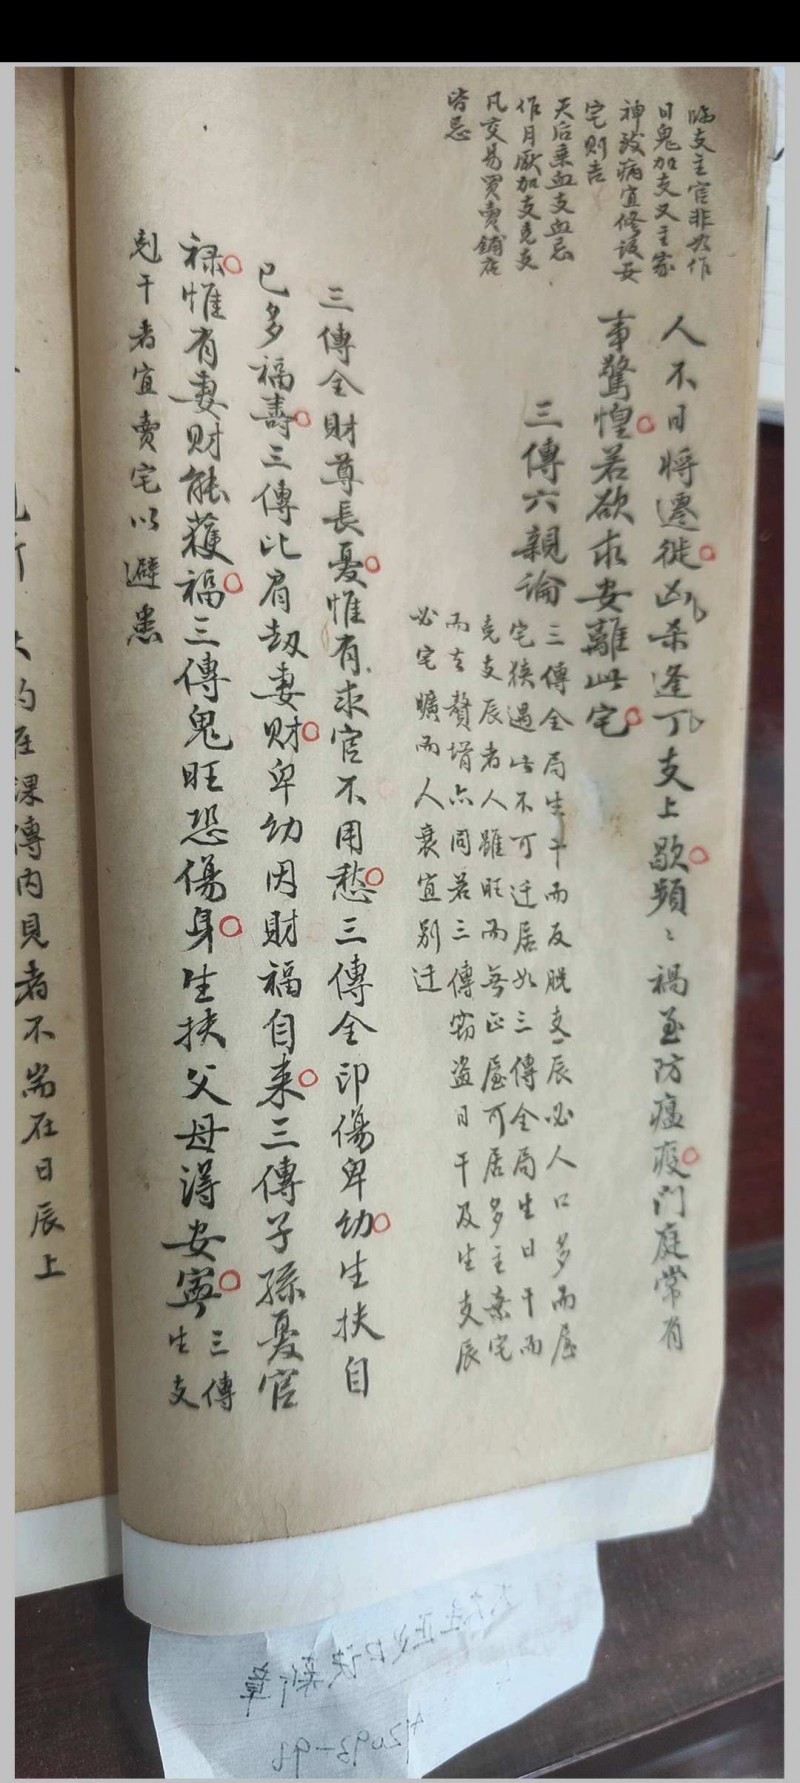 臨支主官非如作
日鬼加支又主家
神致病宜修設安
宅則吉
天后乘血支血忌
作月厭加支克支
凡交易買賣鋪店
皆忌
人不日將遷徙凶殺逢丁支上歇頻〻禍至防瘟疫門庭常有
事驚惶若欲求安離此宅
三傳六親論
三傳全局生干而反脫支辰必人口多而屋
宅狹遇此不可迁居如三傳全局生日干而
克支辰者人雖旺而無正屋可居多主棄宅
而去贅壻亦同若三傳竊盜日干及生支辰
必宅曠而人衰宜別迁
三傳全財尊長憂惟有求官不用愁三傳全印傷卑幼生扶自
已多福壽三傳比肩劫妻財卑幼因財福自来三傳子孫憂官
祿惟有妻財能獲福三傳鬼旺恐傷身生扶父母得安寧
三傳
生支
剋干者宜賣宅以避患
的在課傳內見者不耑在日辰上